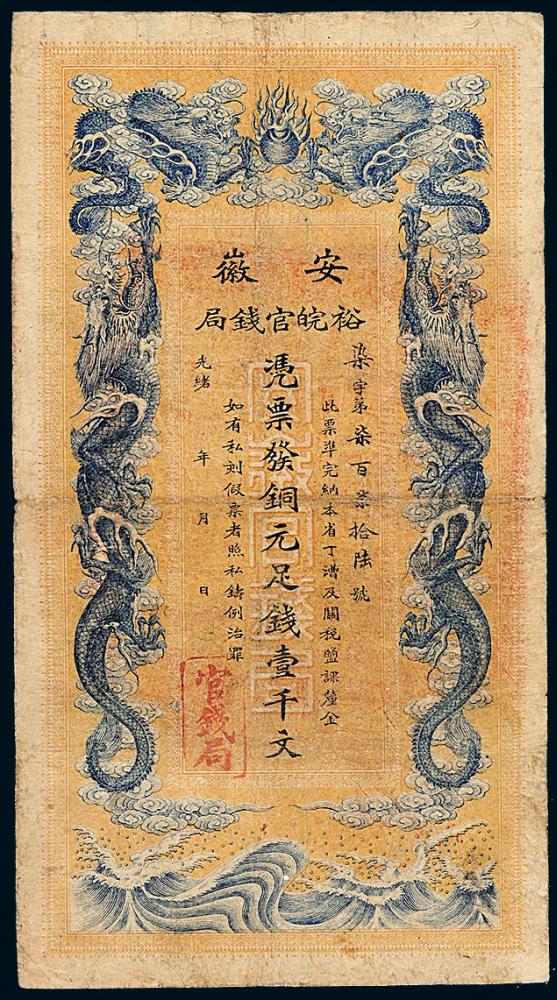 安徽
裕皖官錢局
柒字第柒百柒拾陸號
此票準完納本省丁漕及關稅鹽課釐金
憑票發銅元足錢壹千文
如有私刻假票者照私鑄例治罪
光緒 年 月 日
官錢局